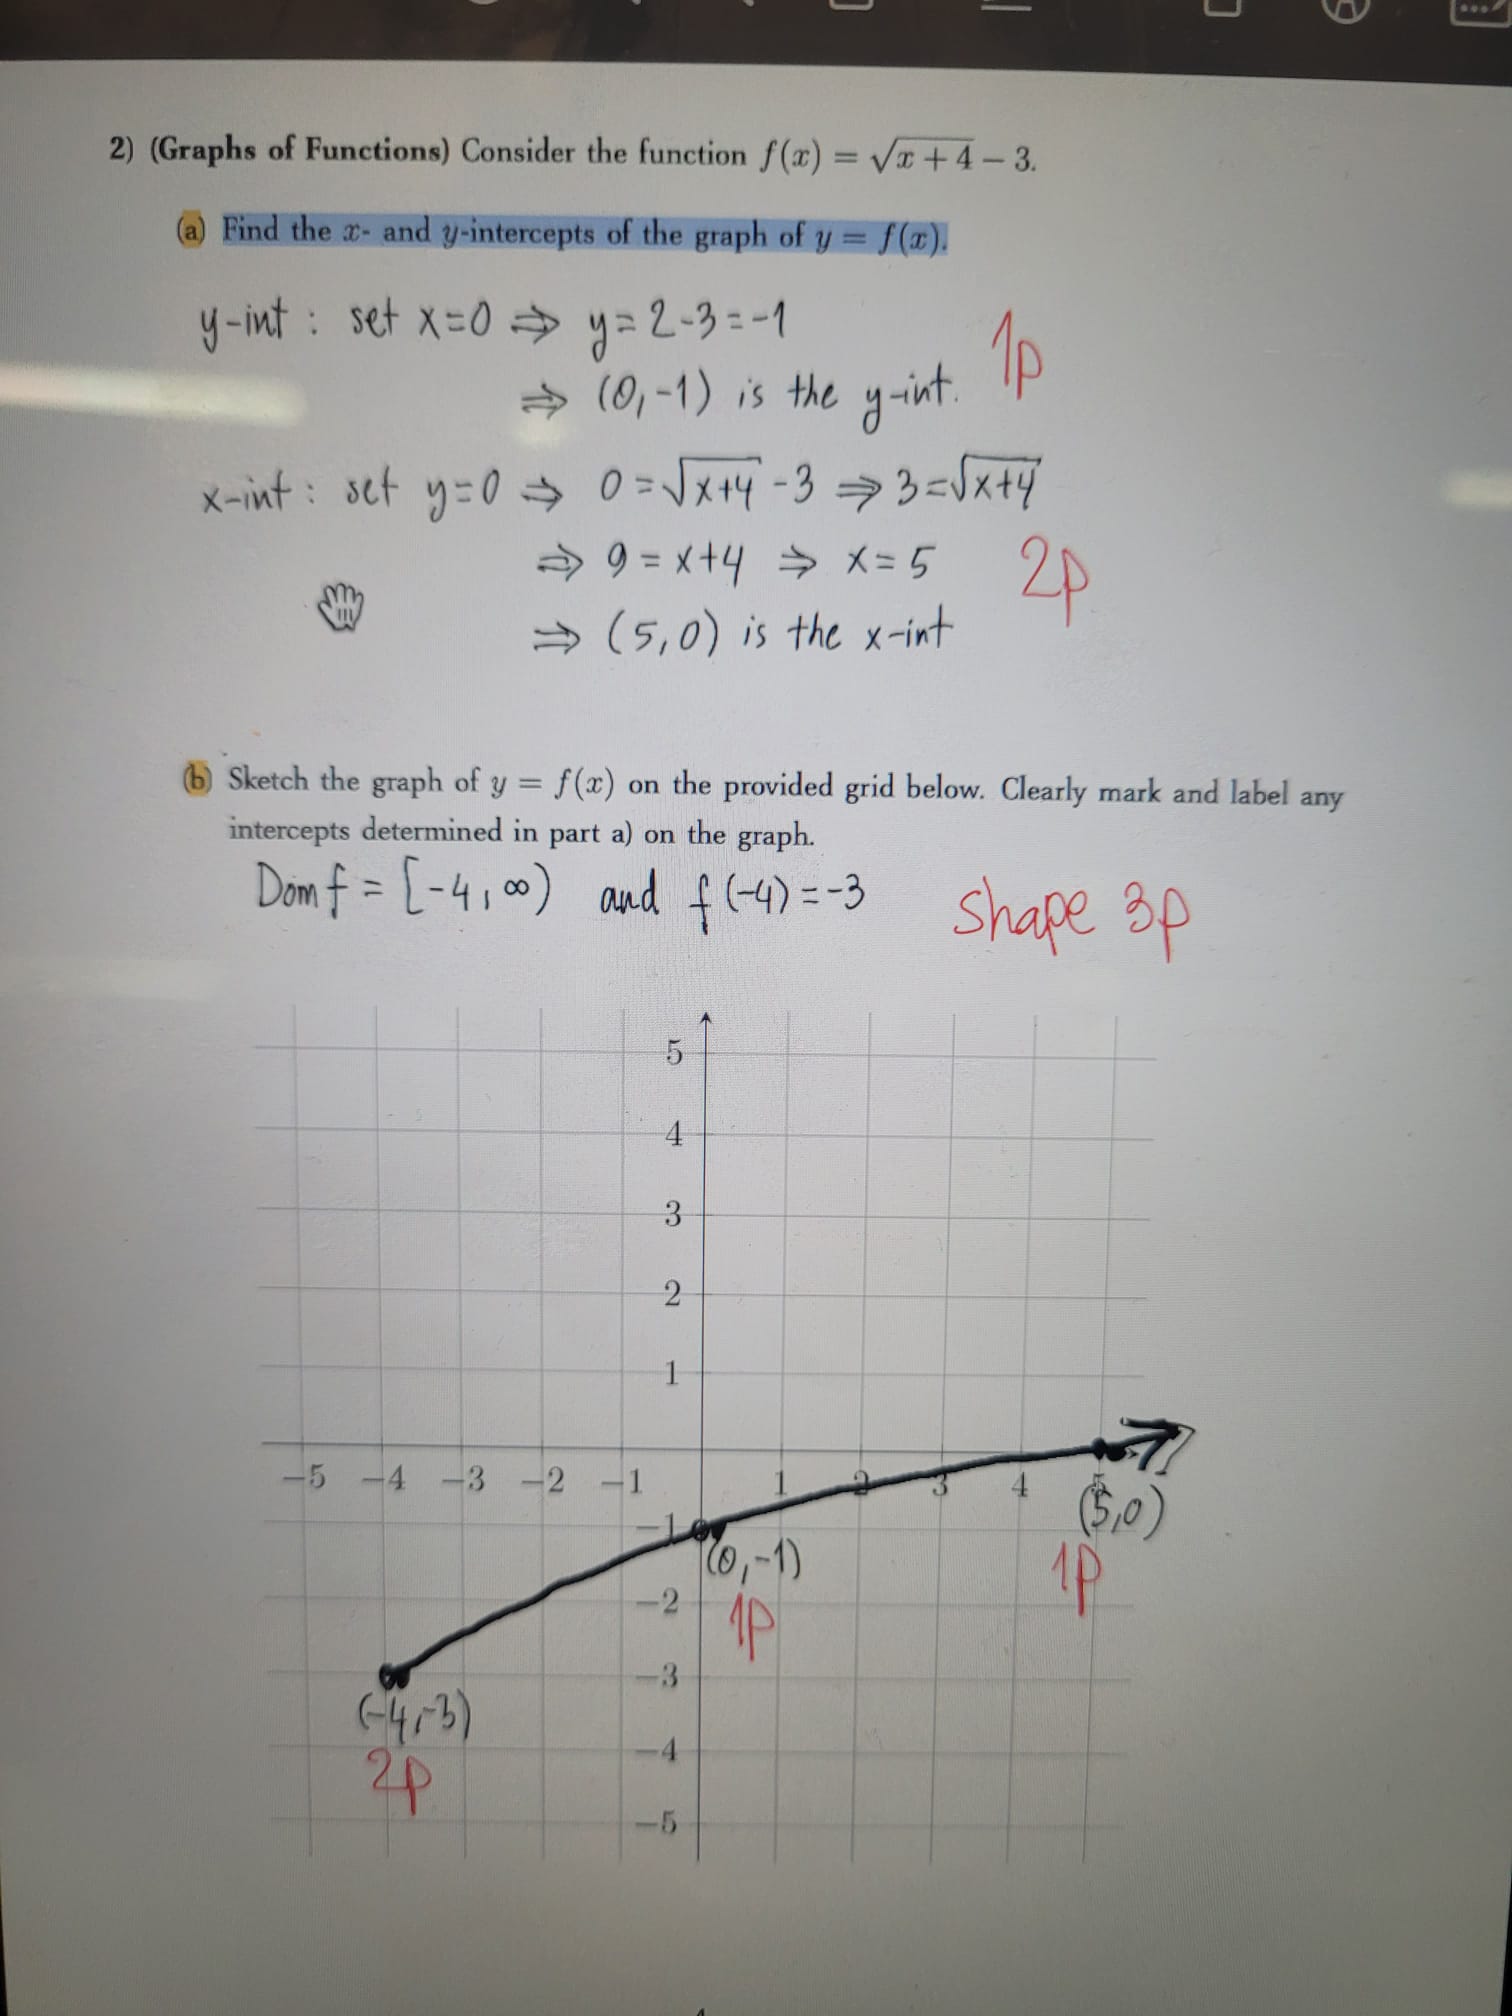 2) (Graphs of Functions) Consider the function f(x) = √x + 4 − 3.
(a) Find the x- and y-intercepts of the graph of y = f(x).
y-int : set x=0 ⇒ y=2-3=-1
⇒ (0,-1) is the y-int.
1p
x-int : set y=0 ⇒ 0=√x+4 -3 ⇒ 3=√x+4
⇒ 9=x+4 ⇒ x=5
2p
⇒ (5,0) is the x-int
(b) Sketch the graph of y = f(x) on the provided grid below. Clearly mark and label any
intercepts determined in part a) on the graph.
Dom f = [-4, ∞) and f(-4)=-3
Shape 3p
5
4
3
2
1
−5 −4 −3 −2 −1 1 2 3 4 5
(5,0)
−1
(0,-1)
1p
−2
1p
−3
(-4,-3)
−4
2p
−5